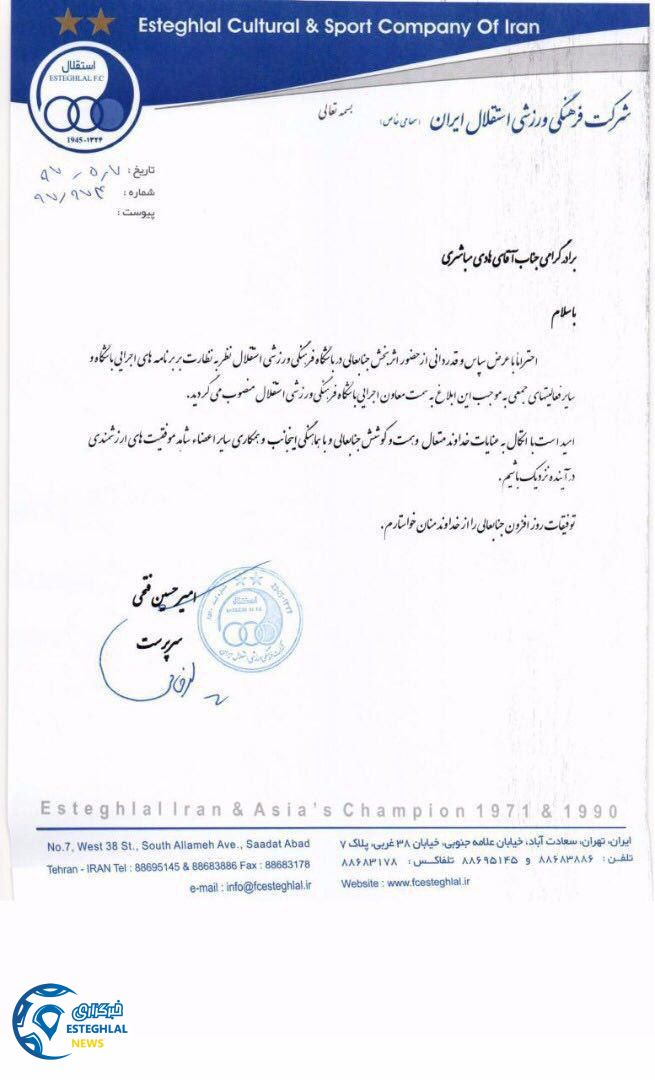 Esteghlal Cultural & Sport Company Of Iran
استقلال
ESTEGHLAL F.C
1945-۱۳۲۴
شرکت فرهنگی ورزشی استقلال ایران (سهامی خاص)
بسمه تعالی
تاریخ : ۹۷ ٫ ۵ ٫ ۷
شماره : ۹۷/۹۷۴
پیوست :
برادر گرامی جناب آقای هادی مباشری
باسلام
احتراماً با عرض سپاس و قدردانی از حضور اثربخش جنابعالی در باشگاه فرهنگی ورزشی استقلال نظر به نظارت بر برنامه های اجرایی باشگاه و
سایر فعالیتهای جمعی به موجب این ابلاغ به سمت معاون اجرایی باشگاه فرهنگی ورزشی استقلال منصوب می گردید.
امید است با اتکال به عنایات خداوند متعال و همت و کوشش جنابعالی و با هماهنگی اینجانب و همکاری سایر اعضاء شاهد موفقیت های ارزشمندی
در آینده نزدیک باشیم.
توفیقات روز افزون جنابعالی را از خداوند منان خواستارم.
امیر حسین فتحی
سرپرست
استقلال
ESTEGHLAL F.C
شرکت فرهنگی ورزشی استقلال ایران
Esteghlal Iran & Asia's Champion 1971 & 1990
ایران، تهران، سعادت آباد، خیابان علامه جنوبی، خیابان ۳۸ غربی، پلاک ۷
تلفـن : ۸۸۶۸۳۸۸۶ و ۸۸۶۹۵۱۴۵ تلفاکـس : ۸۸۶۸۳۱۷۸
Website : www.fcesteghlal.ir
No.7, West 38 St., South Allameh Ave., Saadat Abad
Tehran - IRAN Tel : 88695145 & 88683886 Fax : 88683178
e-mail : info@fcesteghlal.ir
خبرگزاری
ESTEGHLAL
NEWS